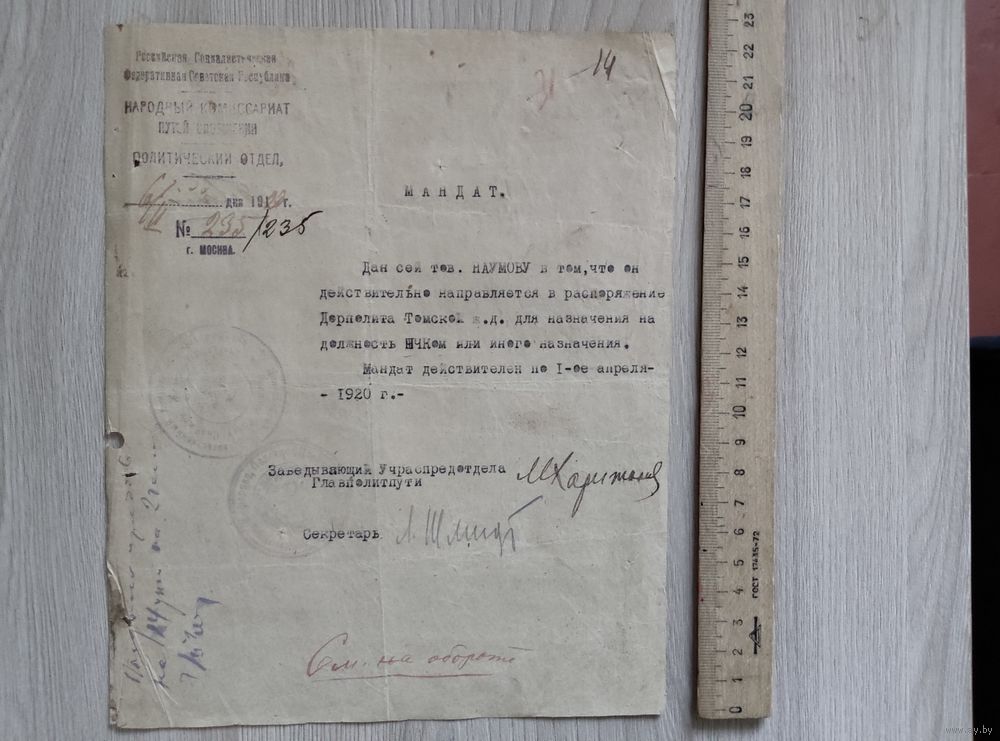 Российская Социалистическая
Федеративная Советская Республика
НАРОДНЫЙ КОМИССАРИАТ
ПУТЕЙ СООБЩЕНИЯ
ПОЛИТИЧЕСКИЙ ОТДЕЛ,
дня 1920 г.
№ 235/235
г. МОСКВА.
31 14
МАНДАТ.
Дан сей тов. НАУМОВУ в том,что он
действительно направляется в распоряжение
Дорполита Томской ж.д. для назначения на
должность НЧКом или иного назначения.
Мандат действителен по I-ое апреля-
- 1920 г.-
Заведывающий Учраспредотдела
Главполитпути
М Харитонов
Секретарь Л. Шмидт
См. на обороте
23
22
21
20
19
18
17
16
15
14
13
12
11
10
9
8
7
6
5
4
3
2
1
0
ГОСТ 17435-72
www.ay.by